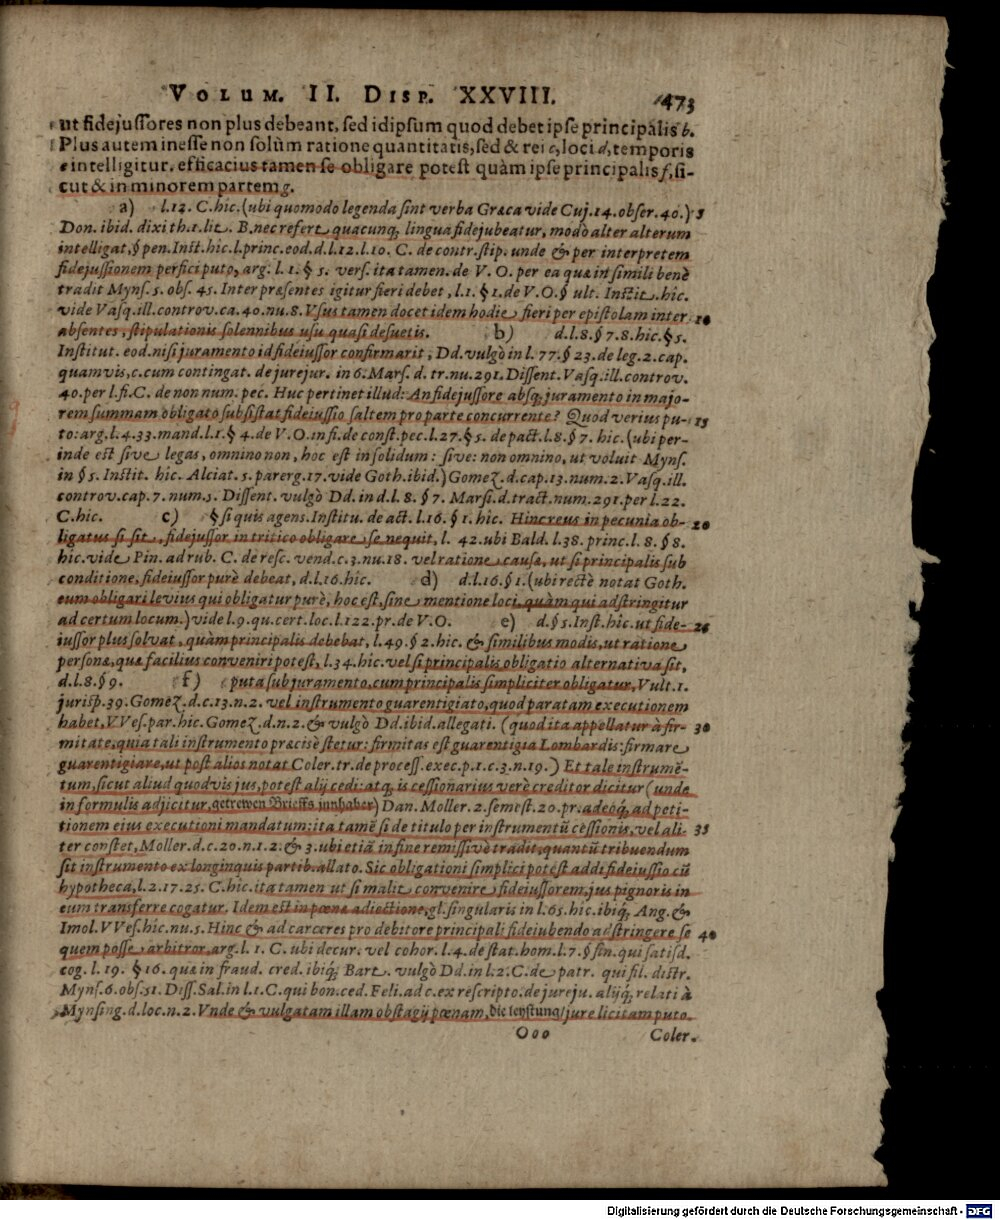 VOLUM. II. DISP. XXVIII. 473
ut fidejussores non plus debeant, sed idipsum quod debet ipse principalis b.
Plus autem inesse non solùm ratione quantitatis, sed & rei c, loci d, temporis
e intelligitur. efficacius tamen se obligare potest quàm ipse principalis f, si-
cut & in minorem partem g.
a) l.12. C.hic.(ubi quomodo legenda sint verba Græca vide Cuj.14.obser.40.) 5
Don. ibid. dixi th.1.lit. B. nec refert quacunq; lingua fidejubeatur, modò alter alterum
intelligat, § pen. Inst.hic.l.princ.eod.d.l.12.l.10. C. de contr.stip. unde & per interpretem
fidejussionem perfici puto, arg. l. 1. § 5. vers. ita tamen. de V. O. per ea quæ in simili benè
tradit Myns. 5. obs. 45. Inter præsentes igitur fieri debet, l.1. § 1. de V.O. § ult. Instit. hic.
vide Vasq.ill.controv.ca.40.nu.8. Vsus tamen docet idem hodie fieri per epistolam inter 10
absentes, stipulationis solennibus usu quasi desuetis. b) d.l.8.§ 7.8.hic.§ 5.
Institut. eod. nisi juramento id fideiussor confirmarit, Dd. vulgò in l. 77.§ 23.de leg.2.cap.
quamvis, c.cum contingat. de jurejur. in 6. Mars. d. tr.nu.291. Dissent. Vasq.ill.controv.
40.per l.fi.C. de non num. pec. Huc pertinet illud: An fidejussore absq; juramento in majo-
rem summam obligato subsistat fideiussio saltem pro parte concurrente? Quod verius pu- 15
to: arg.l.4.33.mand.l.1.§ 4.de V.O.in fi.de const.pec.l.27.§ 5. de pact.l.8.§ 7. hic.(ubi per-
inde est sive legas, omnino non, hoc est in solidum: sive: non omnino, ut voluit Myns.
in § 5. Instit. hic. Alciat. 5. parerg.17.vide Goth.ibid.) Gomez.d.cap.13.num.2. Vasq.ill.
controv.cap.7.num.5. Dissent. vulgò Dd. in d.l. 8. § 7. Marsi.d.tract.num.291.per l.22.
C.hic. c) § si quis agens. Institu. de act. l.16. § 1. hic. Hinc reus in pecunia ob- 20
ligatus si sit, fidejussor in tritico obligare se nequit, l. 42.ubi Bald. l.38. princ.l. 8. § 8.
hic.vide Pin. ad rub. C. de resc. vend.c.3.nu.18. vel ratione causæ, ut si principalis sub
conditione, fideiussor purè debeat, d.l.16.hic. d) d.l.16.§ 1.(ubi rectè notat Goth.
eum obligari levius qui obligatur purè, hoc est, sine mentione loci, quàm qui adstringitur
ad certum locum.) vide l.9.qu.cert.loc.l.122.pr.de V.O. e) d.§ 5. Inst.hic.ut fide- 25
iussor plus solvat, quàm principalis debebat, l. 49.§ 2.hic. & similibus modis, ut ratione
personæ, quæ facilius conveniri potest, l.34.hic. vel si principalis obligatio alternativa sit,
d.l.8.§ 9. f) puta sub juramento, cum principalis simpliciter obligatur, Vult.1.
jurisp.39. Gomez.d.c.13.n.2. vel instrumento guarentigiato, quod paratam executionem
habet, VVes.par.hic. Gomez.d.n.2.& vulgò Dd.ibid.allegati. (quod ita appellatur à fir- 30
mitate, quia tali instrumento præcisè stetur: firmitas est guarentigia Lombardis: firmare
guarentigiare, ut post alios notat Coler.tr.de process.exec.p.1.c.3.n.19.) Et tale instrumẽ-
tum, sicut aliud quodvis jus, potest alij cedi: atq; is cessionarius verè creditor dicitur (unde
in formulis adjicitur, getrewen Brieffs jnnhaber) Dan. Moller. 2. semest. 20. pr. adeoq; ad peti-
tionem eius executioni mandatum: ita tamẽ si de titulo per instrumentũ cessionis, vel ali- 35
ter constet, Moller.d.c.20.n.1.2.& 3.ubi etiã in fine remissivè tradit, quantũ tribuendum
sit instrumento ex longinquis partib. allato. Sic obligationi simplici potest addi fideiussio cũ
hypotheca, l.2.17.25. C.hic. ita tamen ut si malit convenire fideiussorem, jus pignoris in
eum transferre cogatur. Idem est in pœnæ adiectione, gl.singularis in l.65.hic.ibiq; Ang. &
Imol. VVes.hic.nu.5. Hinc & ad carceres pro debitore principali fideiubendo adstringere se 40
quem posse arbitror, arg.l. 1. C. ubi decur. vel cohor. l.4. de stat.hom.l.7.§ fin.qui satisd.
cog. l. 19. § 16. quæ in fraud. cred. ibiq; Bart. vulgò Dd in l.2. C.de patr. qui fil. distr.
Myns.6.obs.51. Diss. Sal. in l.1.C.qui bon.ced. Feli. ad c.ex rescripto. de jureju. alijq; relati à
Mynsing.d.loc.n.2. Vnde & vulgatam illam obstagij pœnam, die leystung/ jure licitam puto.
Ooo Coler.
Digitalisierung gefördert durch die Deutsche Forschungsgemeinschaft - DFG